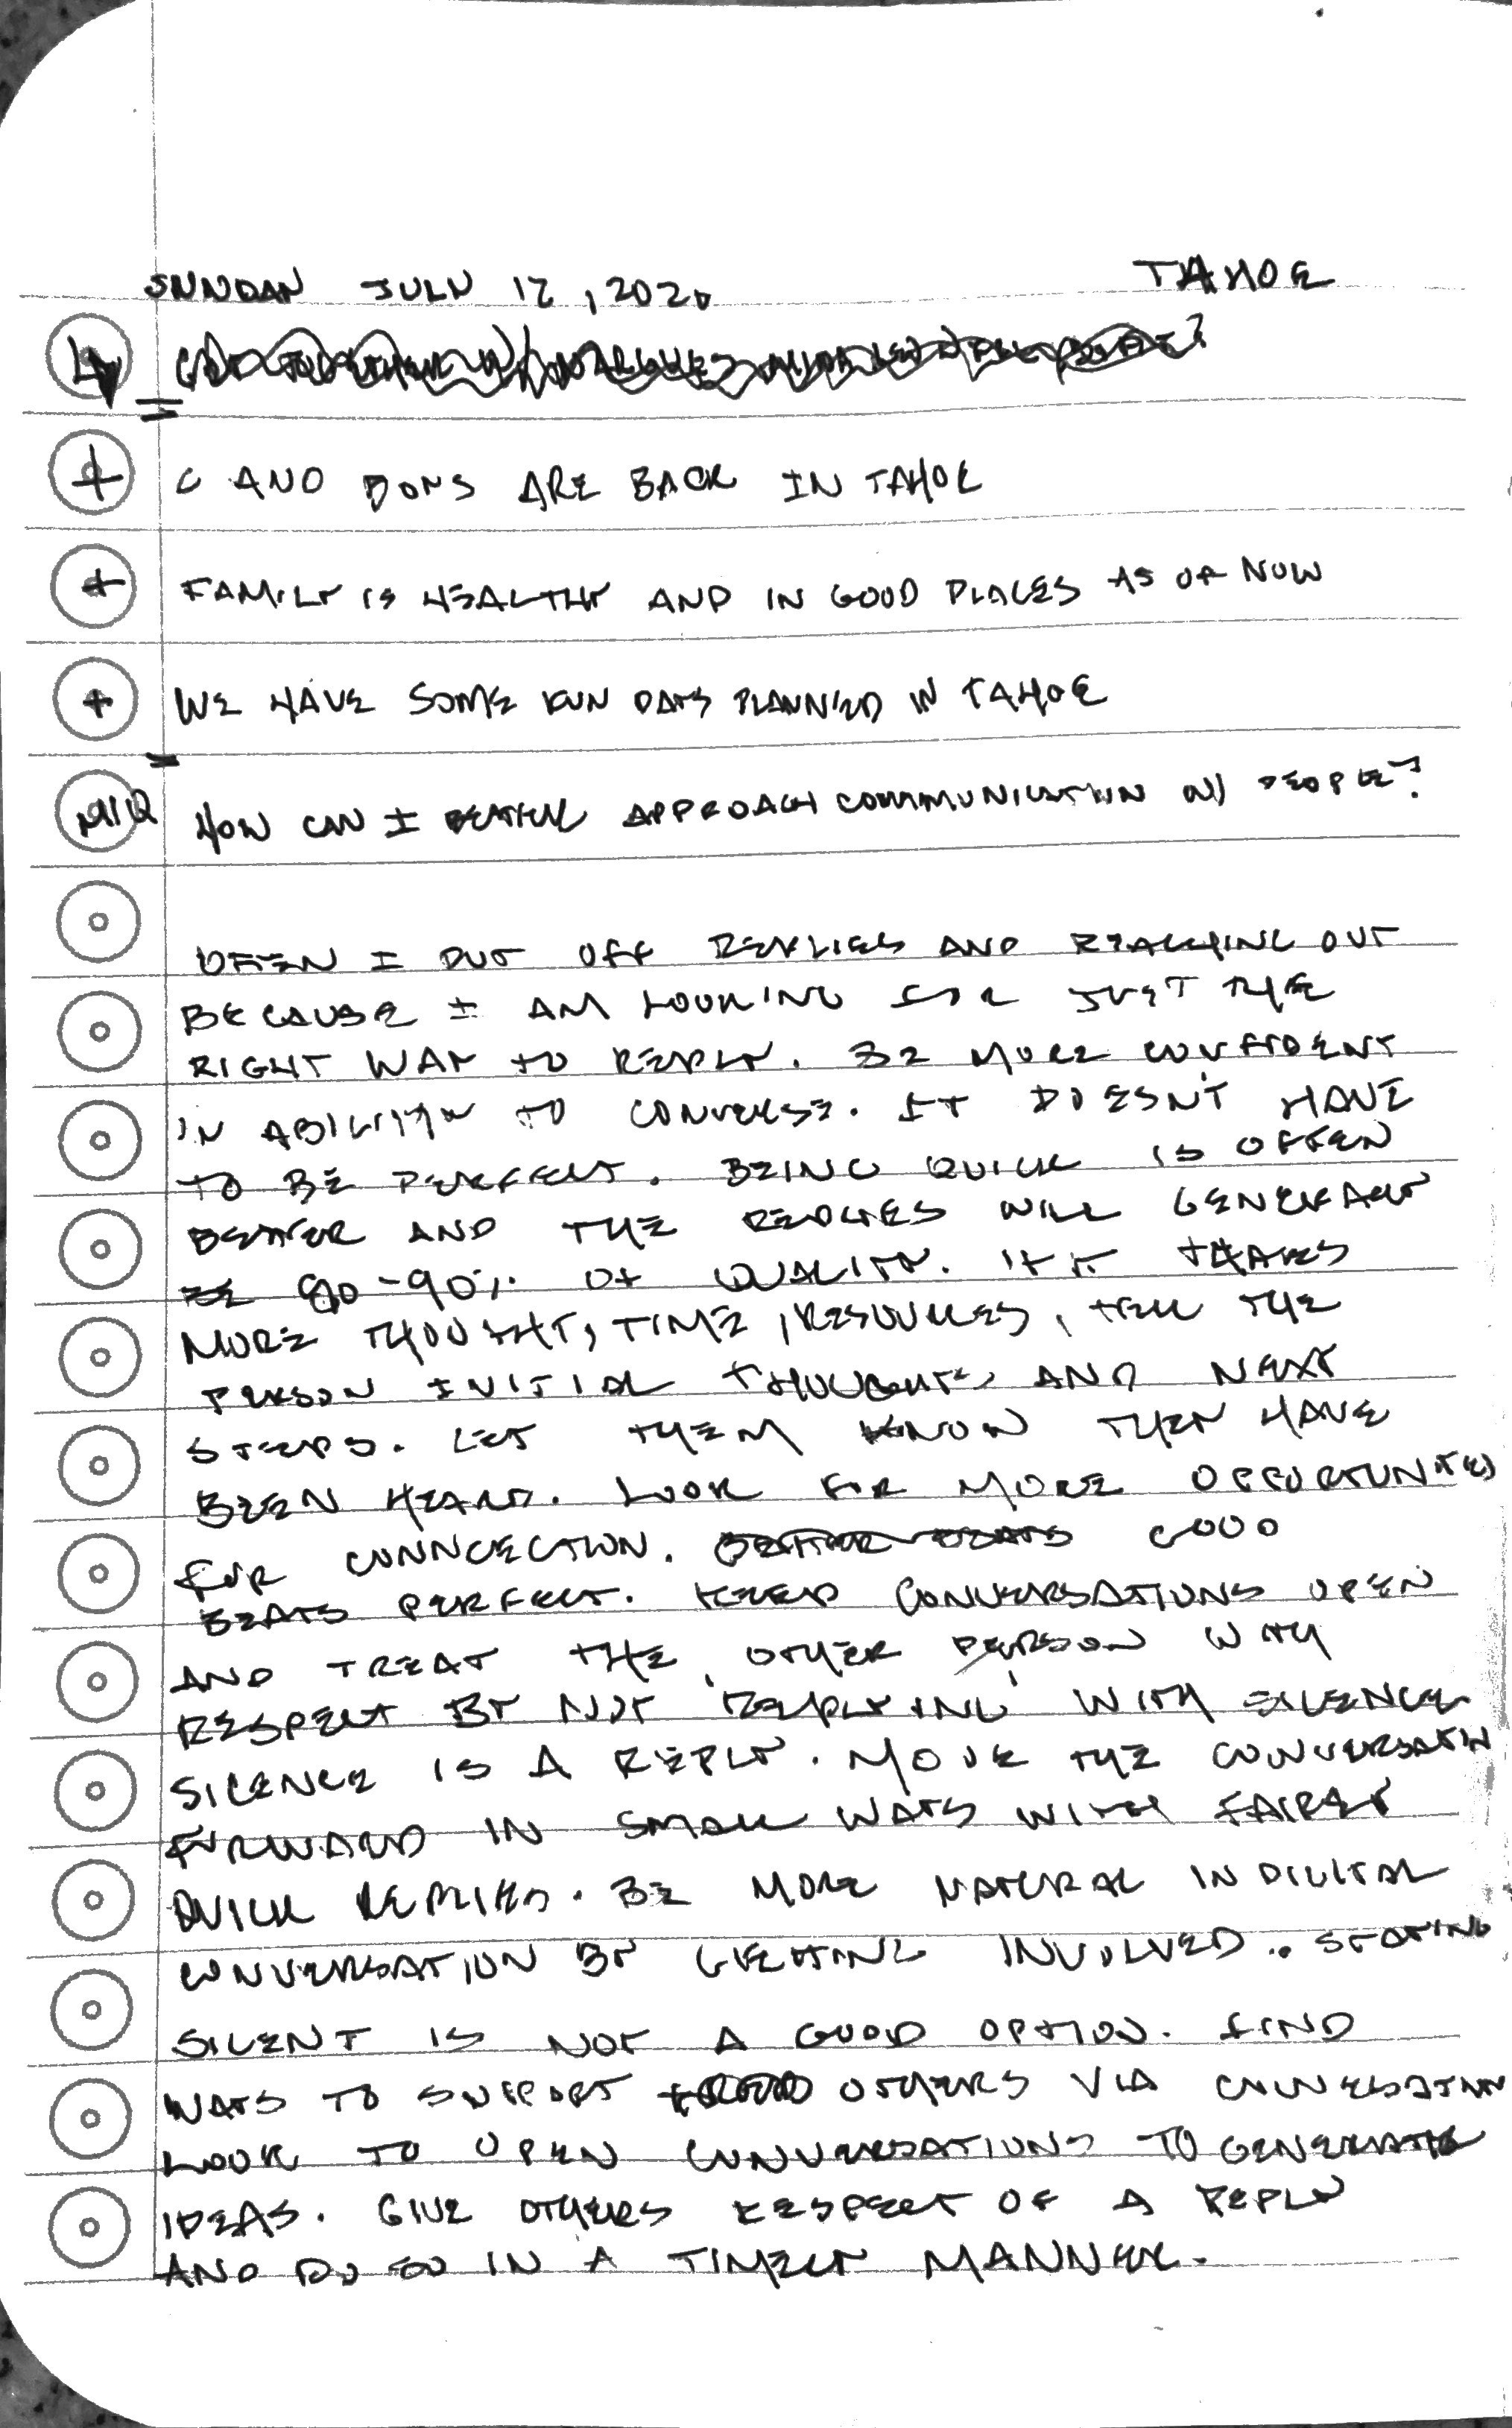 SUNDAY JULY 12, 2020 TAHOE
+ C AND BOYS ARE BACK IN TAHOE
+ FAMILY IS HEALTHY AND IN GOOD PLACES AS OF NOW
+ WE HAVE SOME FUN DAYS PLANNED IN TAHOE
MIQ HOW CAN I BETTER APPROACH COMMUNICATION W/ PEOPLE?
OFTEN I PUT OFF REPLIES AND REACHING OUT
BECAUSE I AM LOOKING FOR JUST THE
RIGHT WAY TO REPLY. BE MORE CONFIDENT
IN ABILITY TO CONVERSE. IT DOESN'T HAVE
TO BE PERFECT. BEING QUICK IS OFTEN
BETTER AND THE REPLIES WILL GENERALLY
BE 80-90% OF QUALITY. IF IT TAKES
MORE THOUGHT, TIME, RESOURCES, TELL THE
PERSON INITIAL THOUGHTS AND NEXT
STEPS. LET THEM KNOW THEY HAVE
BEEN HEARD. LOOK FOR MORE OPPORTUNITIES
FOR CONNCECTION. GOOD
BEATS PERFECT. KEEP CONVERSATIONS OPEN
AND TREAT THE OTHER PERSON WITH
RESPECT BY NOT 'REPLYING' WITH SILENCE
SILENCE IS A REPLY. MOVE THE CONVERSATION
FORWARD IN SMALL WAYS WITH FAIRLY
QUICK REPLIES. BE MORE NATURAL IN DIGITAL
CONVERSATION BY GETTING INVOLVED. STAYING
SILENT IS NOT A GOOD OPTION. FIND
WAYS TO SUPPORT OTHERS VIA CONVERSATION
LOOK TO OPEN CONVERSATIONS TO GENERATE
IDEAS. GIVE OTHERS RESPECT OF A REPLY
AND DO SO IN A TIMELY MANNER.